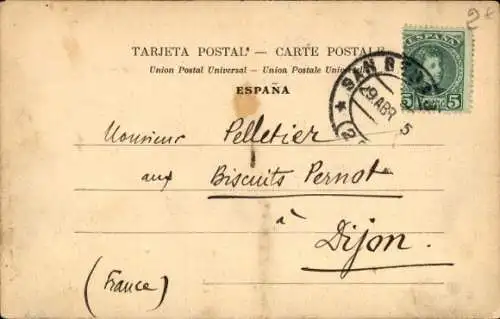 2€
TARJETA POSTAL — CARTE POSTALE
Union Postal Universal — Union Postale Universelle
ESPAÑA
ESPAÑA
5 5
SAN
29 ABR 5
(2)
Monsieur Pelletier
aux Biscuits Pernot
à
Dijon.
(France)